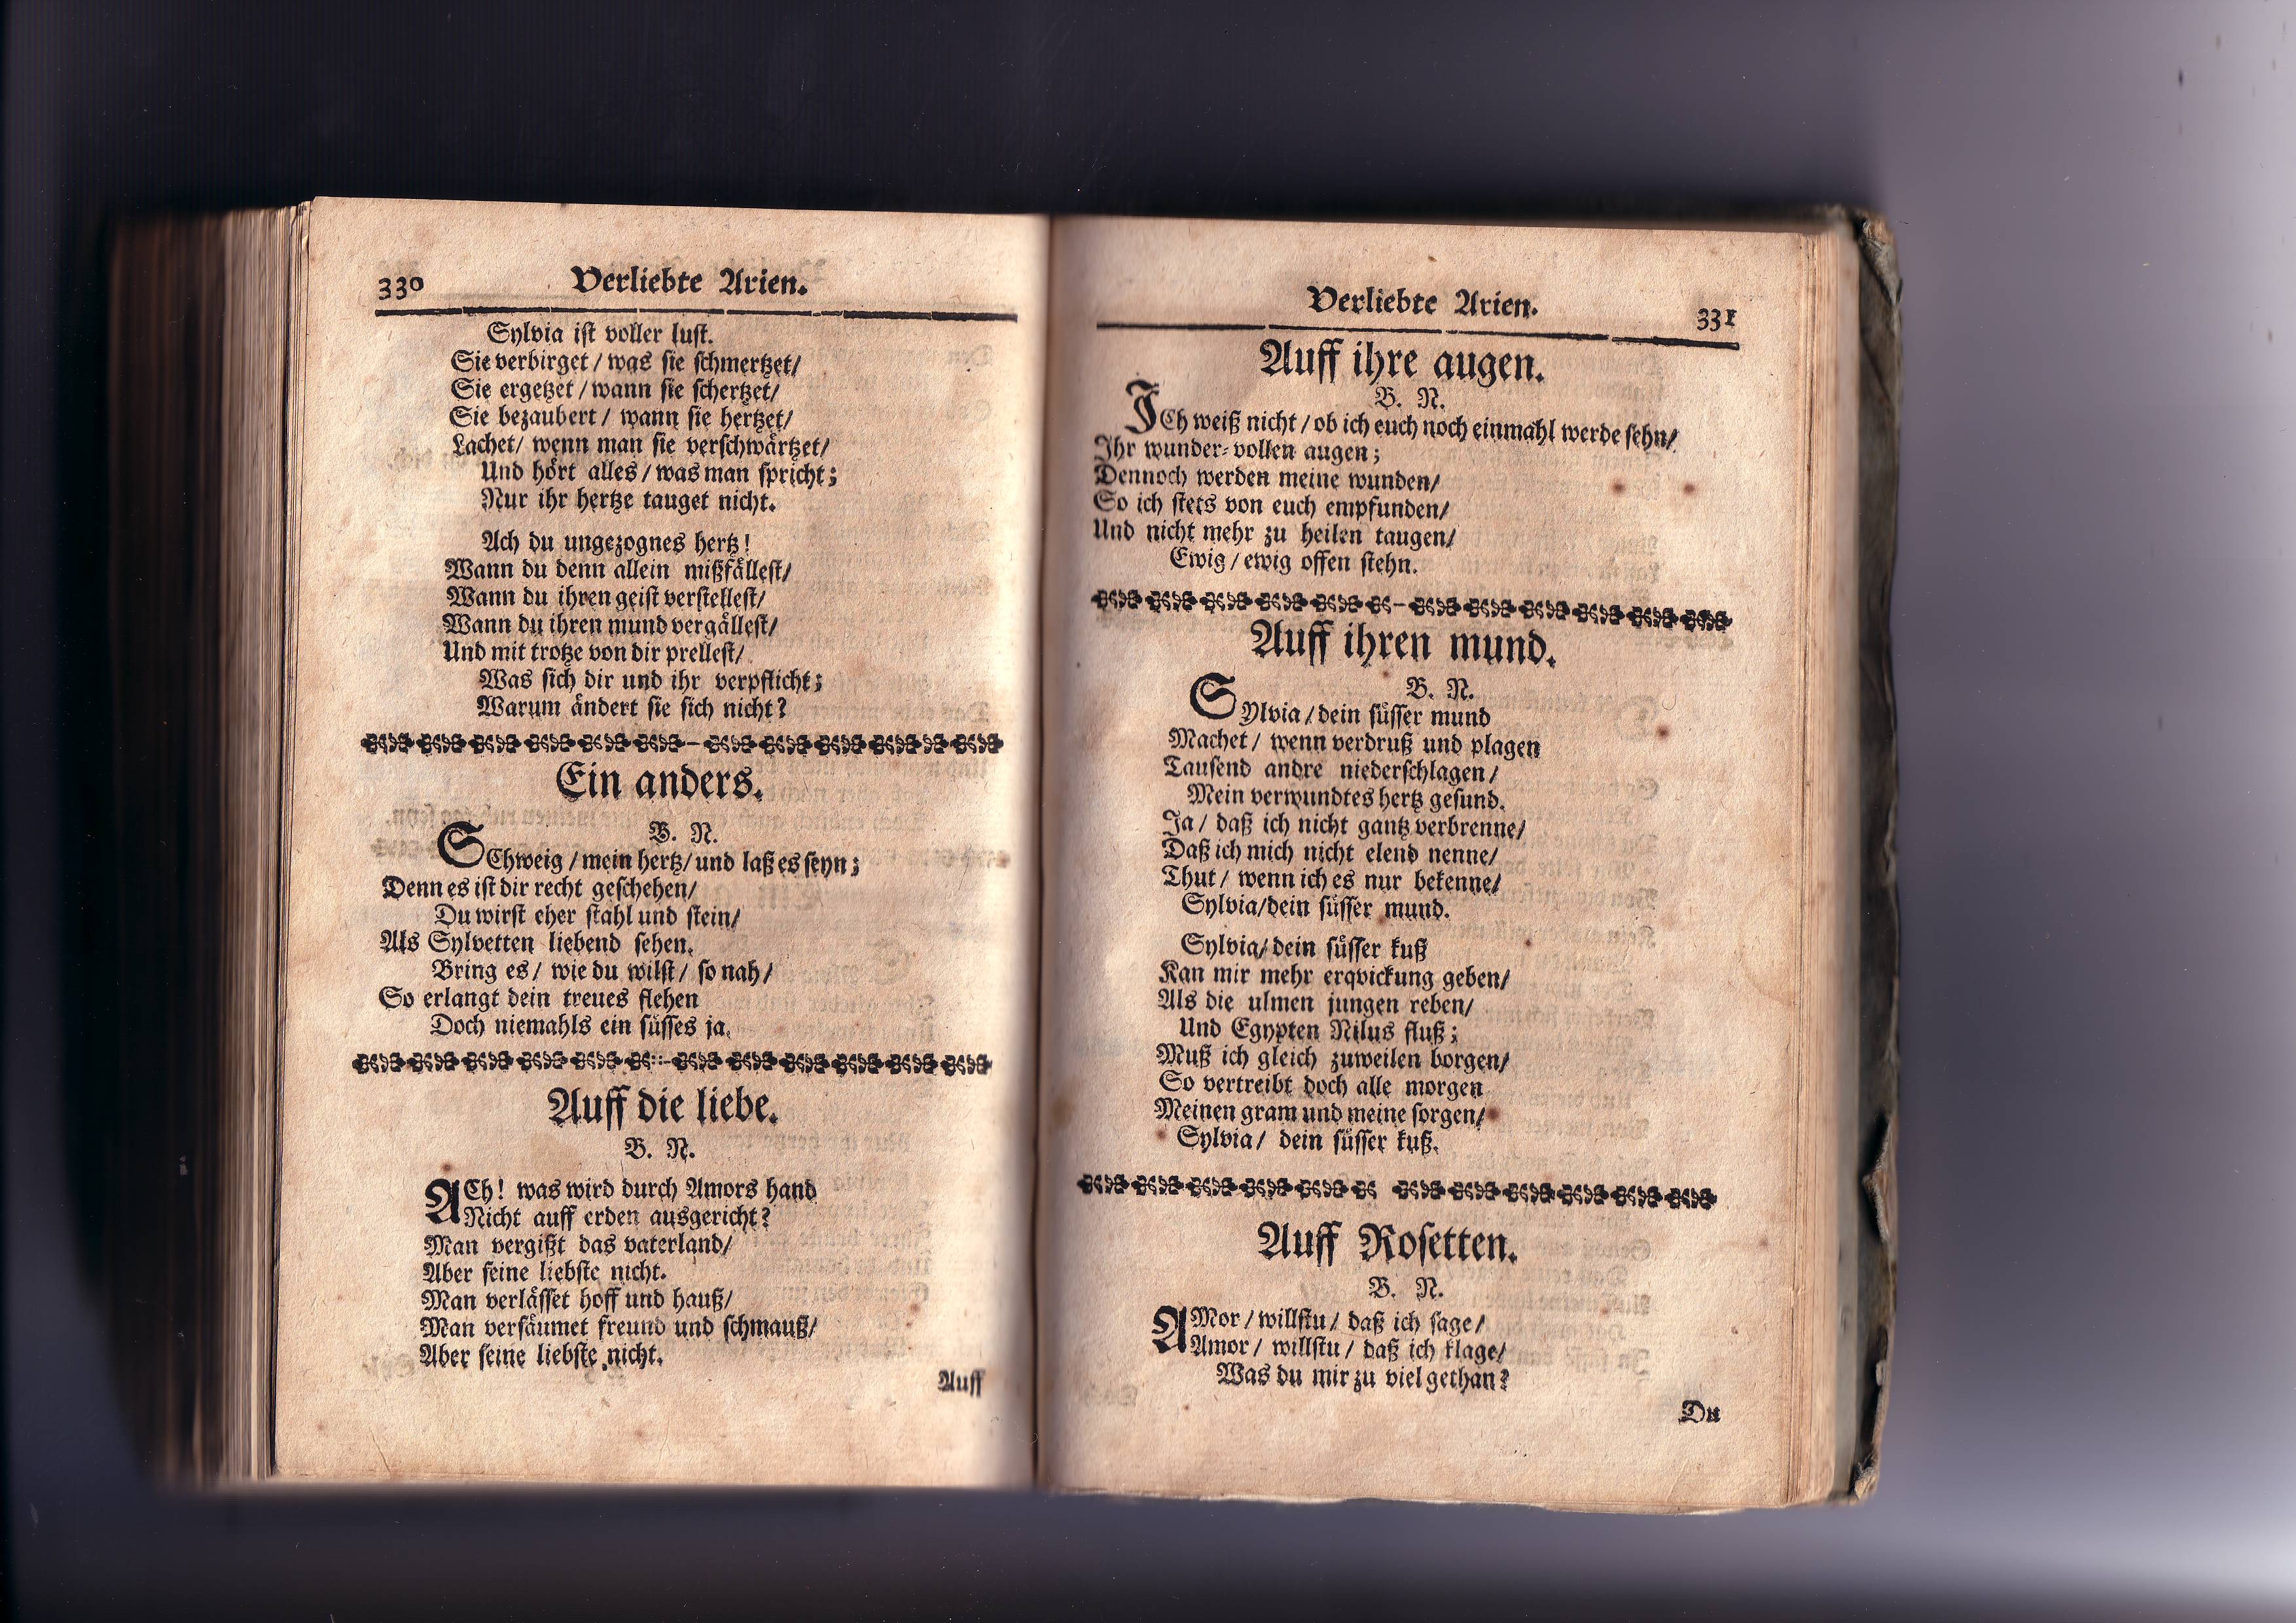 330 Verliebte Arien.
Sylvia ist voller lust.
Sie verbirget / was sie schmertzet/
Sie ergetzet / wann sie schertzet/
Sie bezaubert / wann sie hertzet/
Lachet/ wenn man sie verschwärtzet/
Und hört alles / was man spricht;
Nur ihr hertze tauget nicht.
Ach du ungezognes hertz!
Wann du denn allein mißfällest/
Wann du ihren geist verstellest/
Wann du ihren mund vergällest/
Und mit trotze von dir prellest/
Was sich dir und ihr verpflicht;
Warum ändert sie sich nicht?
Ein anders.
B. N.
SChweig / mein hertz/ und laß es seyn;
Denn es ist dir recht geschehen/
Du wirst eher stahl und stein/
Als Sylvetten liebend sehen.
Bring es / wie du wilst / so nah/
So erlangt dein treues flehen
Doch niemahls ein süsses ja.
Auff die liebe.
B. N.
ACh! was wird durch Amors hand
Nicht auff erden ausgericht?
Man vergißt das vaterland/
Aber seine liebste nicht.
Man verlässet hoff und hauß/
Man versäumet freund und schmauß/
Aber seine liebste nicht.
Auff
Verliebte Arien. 331
Auff ihre augen.
B. N.
ICh weiß nicht / ob ich euch noch einmahl werde sehn/
Ihr wunder-vollen augen;
Dennoch werden meine wunden/
So ich stets von euch empfunden/
Und nicht mehr zu heilen taugen/
Ewig / ewig offen stehn.
Auff ihren mund.
B. N.
SYlvia / dein süsser mund
Machet / wenn verdruß und plagen
Tausend andre niederschlagen/
Mein verwundtes hertz gesund.
Ja / daß ich nicht gantz verbrenne/
Daß ich mich nicht elend nenne/
Thut / wenn ich es nur bekenne/
Sylvia/dein süsser mund.
Sylvia/ dein süsser kuß
Kan mir mehr erqvickung geben/
Als die ulmen jungen reben/
Und Egypten Nilus fluß;
Muß ich gleich zuweilen borgen/
So vertreibt doch alle morgen
Meinen gram und meine sorgen/
Sylvia/ dein süsser kuß.
Auff Rosetten.
B. N.
AMor / willstu / daß ich sage/
Amor / willstu / daß ich klage/
Was du mir zu viel gethan?
Du